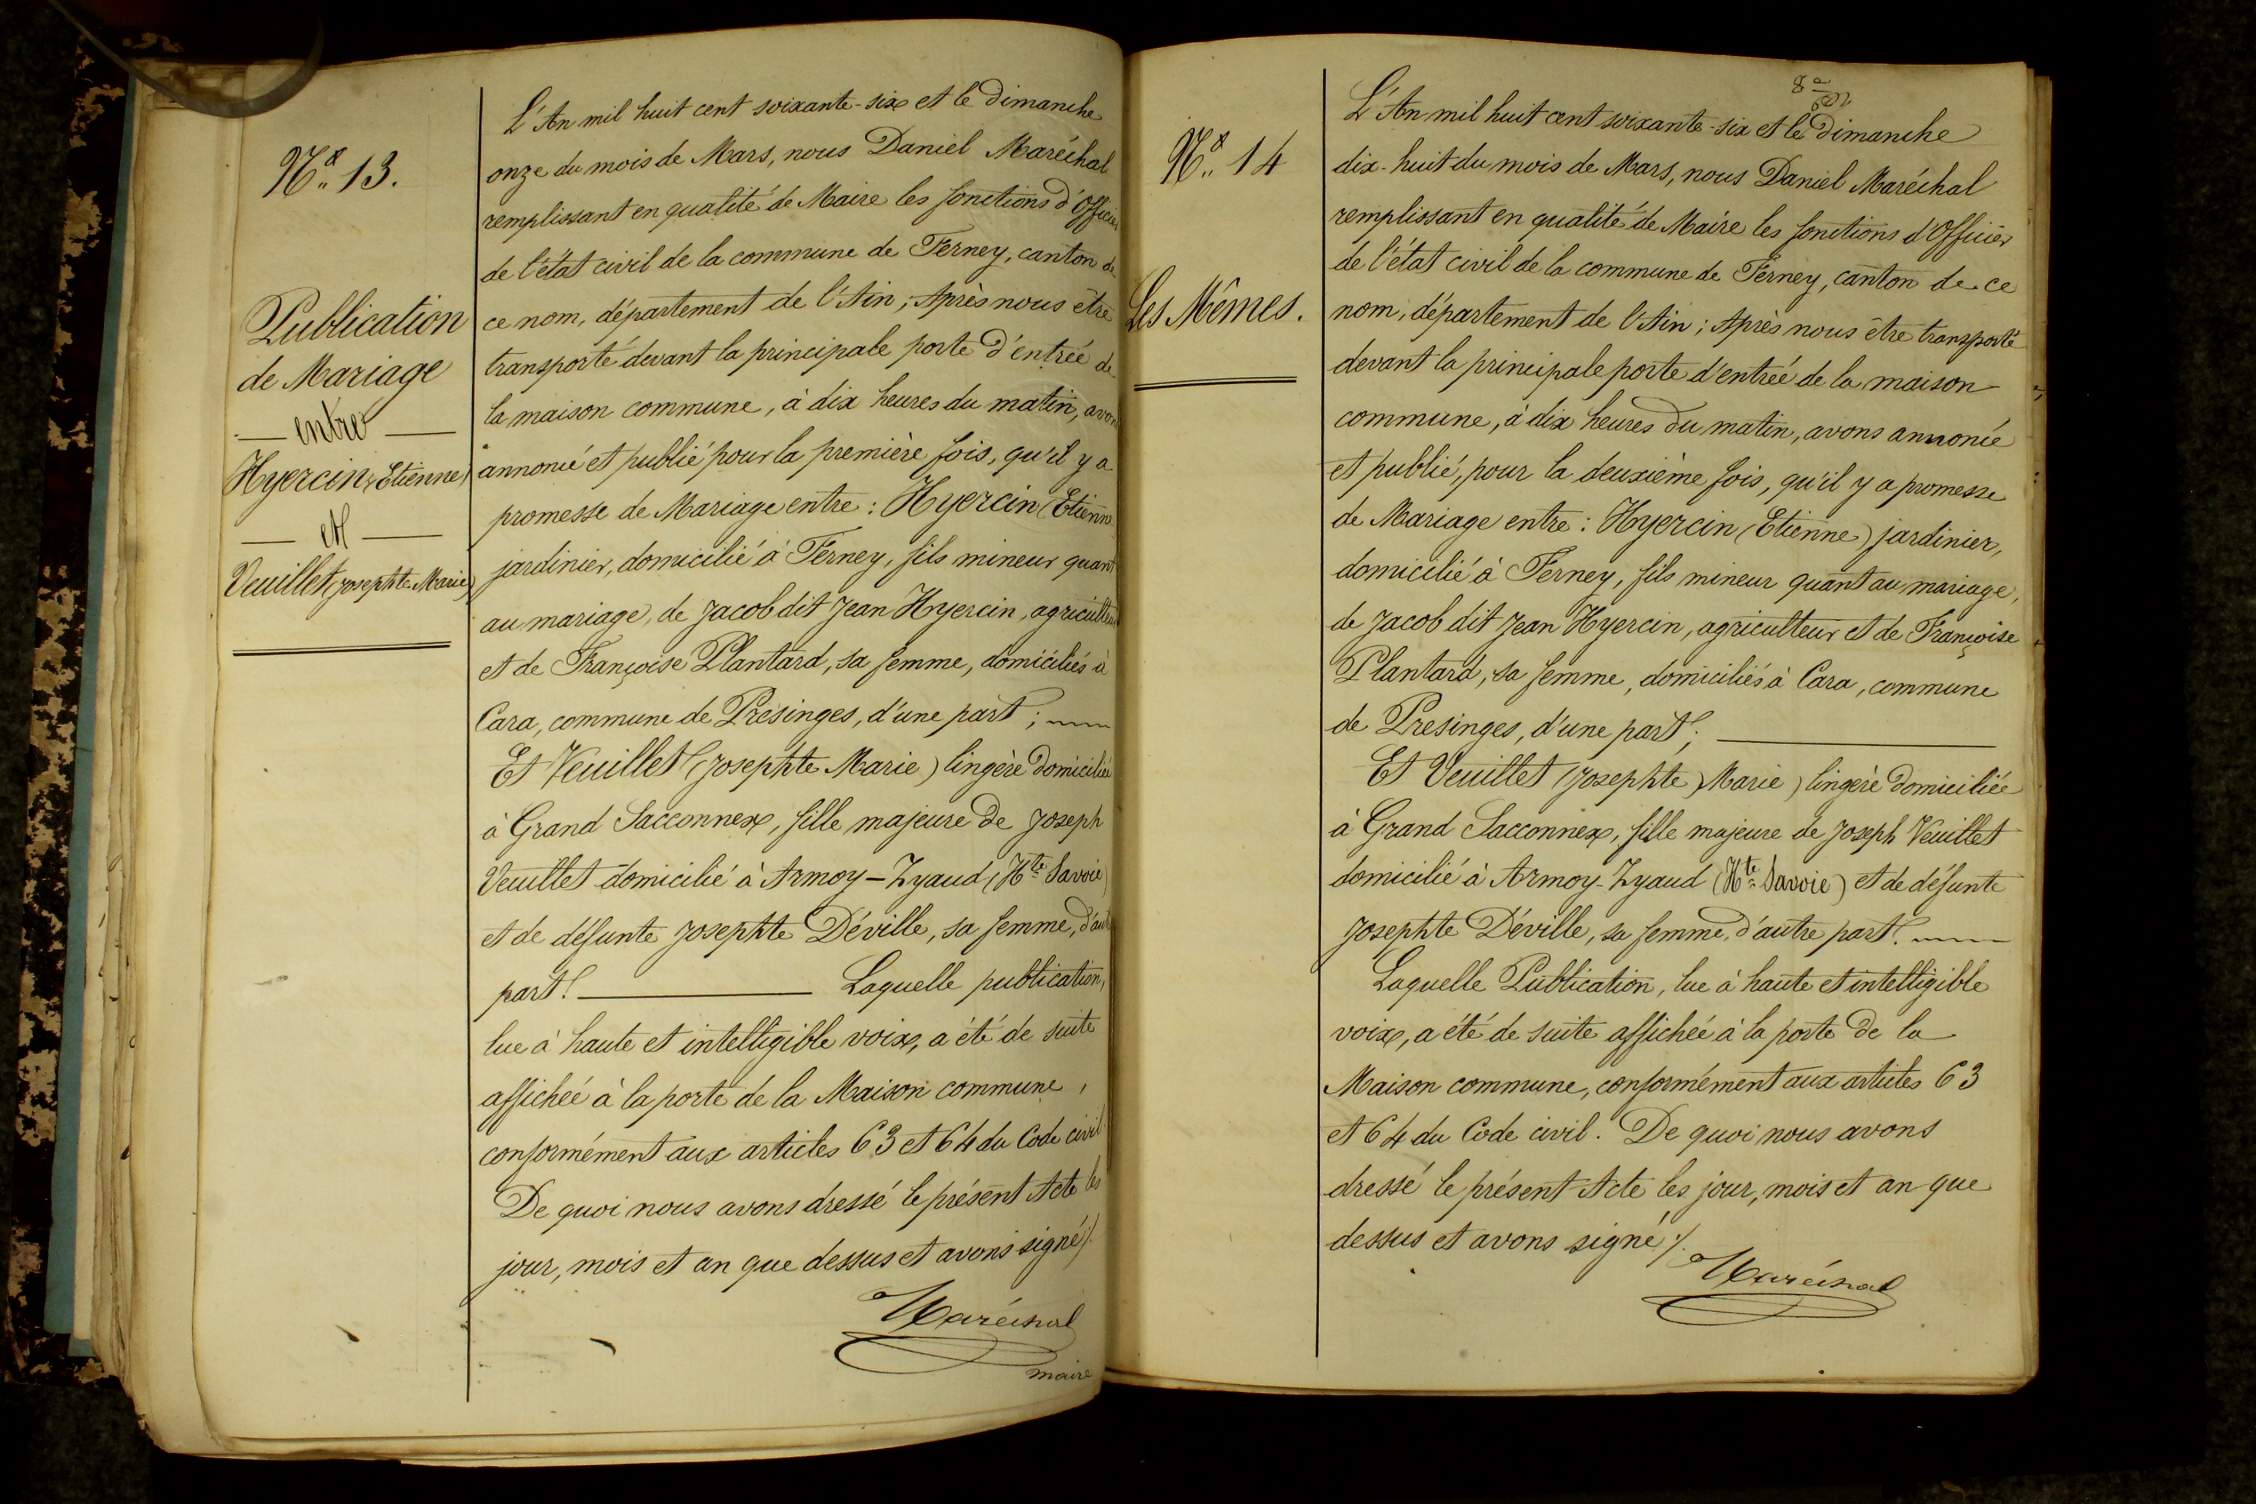 N.° 13.
Publication
de Mariage
entre
Hyercin (Etienne)
et
Veuillet (Josephte Marie)
L'An mil huit cent soixante-six et le Dimanche
onze du mois de Mars, nous Daniel Maréchal
remplissant en qualité de Maire les fonctions d'Officier
de l'état civil de la commune de Ferney, canton de
ce nom, département de l'Ain; Après nous être
transporté devant la principale porte d'entrée de
la maison commune, à dix heures du matin, avons
annoncé et publié pour la première fois, qu'il y a
promesse de Mariage entre : Hyercin (Etienne
jardinier, domicilié à Ferney, fils mineur quant
au mariage, de Jacob dit Jean Hyercin, agriculteur
et de Françoise Plantard, sa femme, domiciliés à
Cara, commune de Présinges, d'une part ;
Et Veuillet (Josephte Marie) lingère domiciliée
à Grand Sacconnex, fille majeure de Joseph
Veuillet domicilié à Armoy-Lyaud (Hte Savoie)
et de défunte Josephte Déville, sa femme, d'autre
part. Laquelle publication,
lue à haute et intelligible voix, a été de suite
affichée à la porte de la Maison commune,
conformément aux articles 63 et 64 du Code civil.
De quoi nous avons dressé le présent Acte les
jour, mois et an que dessus et avons signé ./.
Maréchal
maire
N.° 14
Les Mêmes.
L'An mil huit cent soixante-six et le Dimanche
dix-huit du mois de Mars, nous Daniel Maréchal
remplissant en qualité de Maire les fonctions d'Officier
de l'état civil de la commune de Ferney, canton de ce
nom, département de l'Ain ; Après nous être transporté
devant la principale porte d'entrée de la maison
commune, à dix heures du matin, avons annoncé
et publié, pour la deuxième fois, qu'il y a promesse
de Mariage entre : Hyercin (Etienne) jardinier,
domicilié à Ferney, fils mineur quant au mariage,
de Jacob dit Jean Hyercin, agriculteur et de Françoise
Plantard, sa femme, domiciliés à Cara, commune
de Presinges, d'une part ;
Et Veuillet (Josephte Marie) lingère domiciliée
à Grand Sacconnex, fille majeure de Joseph Veuillet
domicilié à Armoy-Lyaud (Hte Savoie) et de défunte
Josephte Déville, sa femme, d'autre part.
Laquelle Publication, lue à haute et intelligible
voix, a été de suite affichée à la porte de la
Maison commune, conformément aux articles 63
et 64 du Code civil. De quoi nous avons
dressé le présent Acte les jour, mois et an que
dessus et avons signé ./.
Maréchal